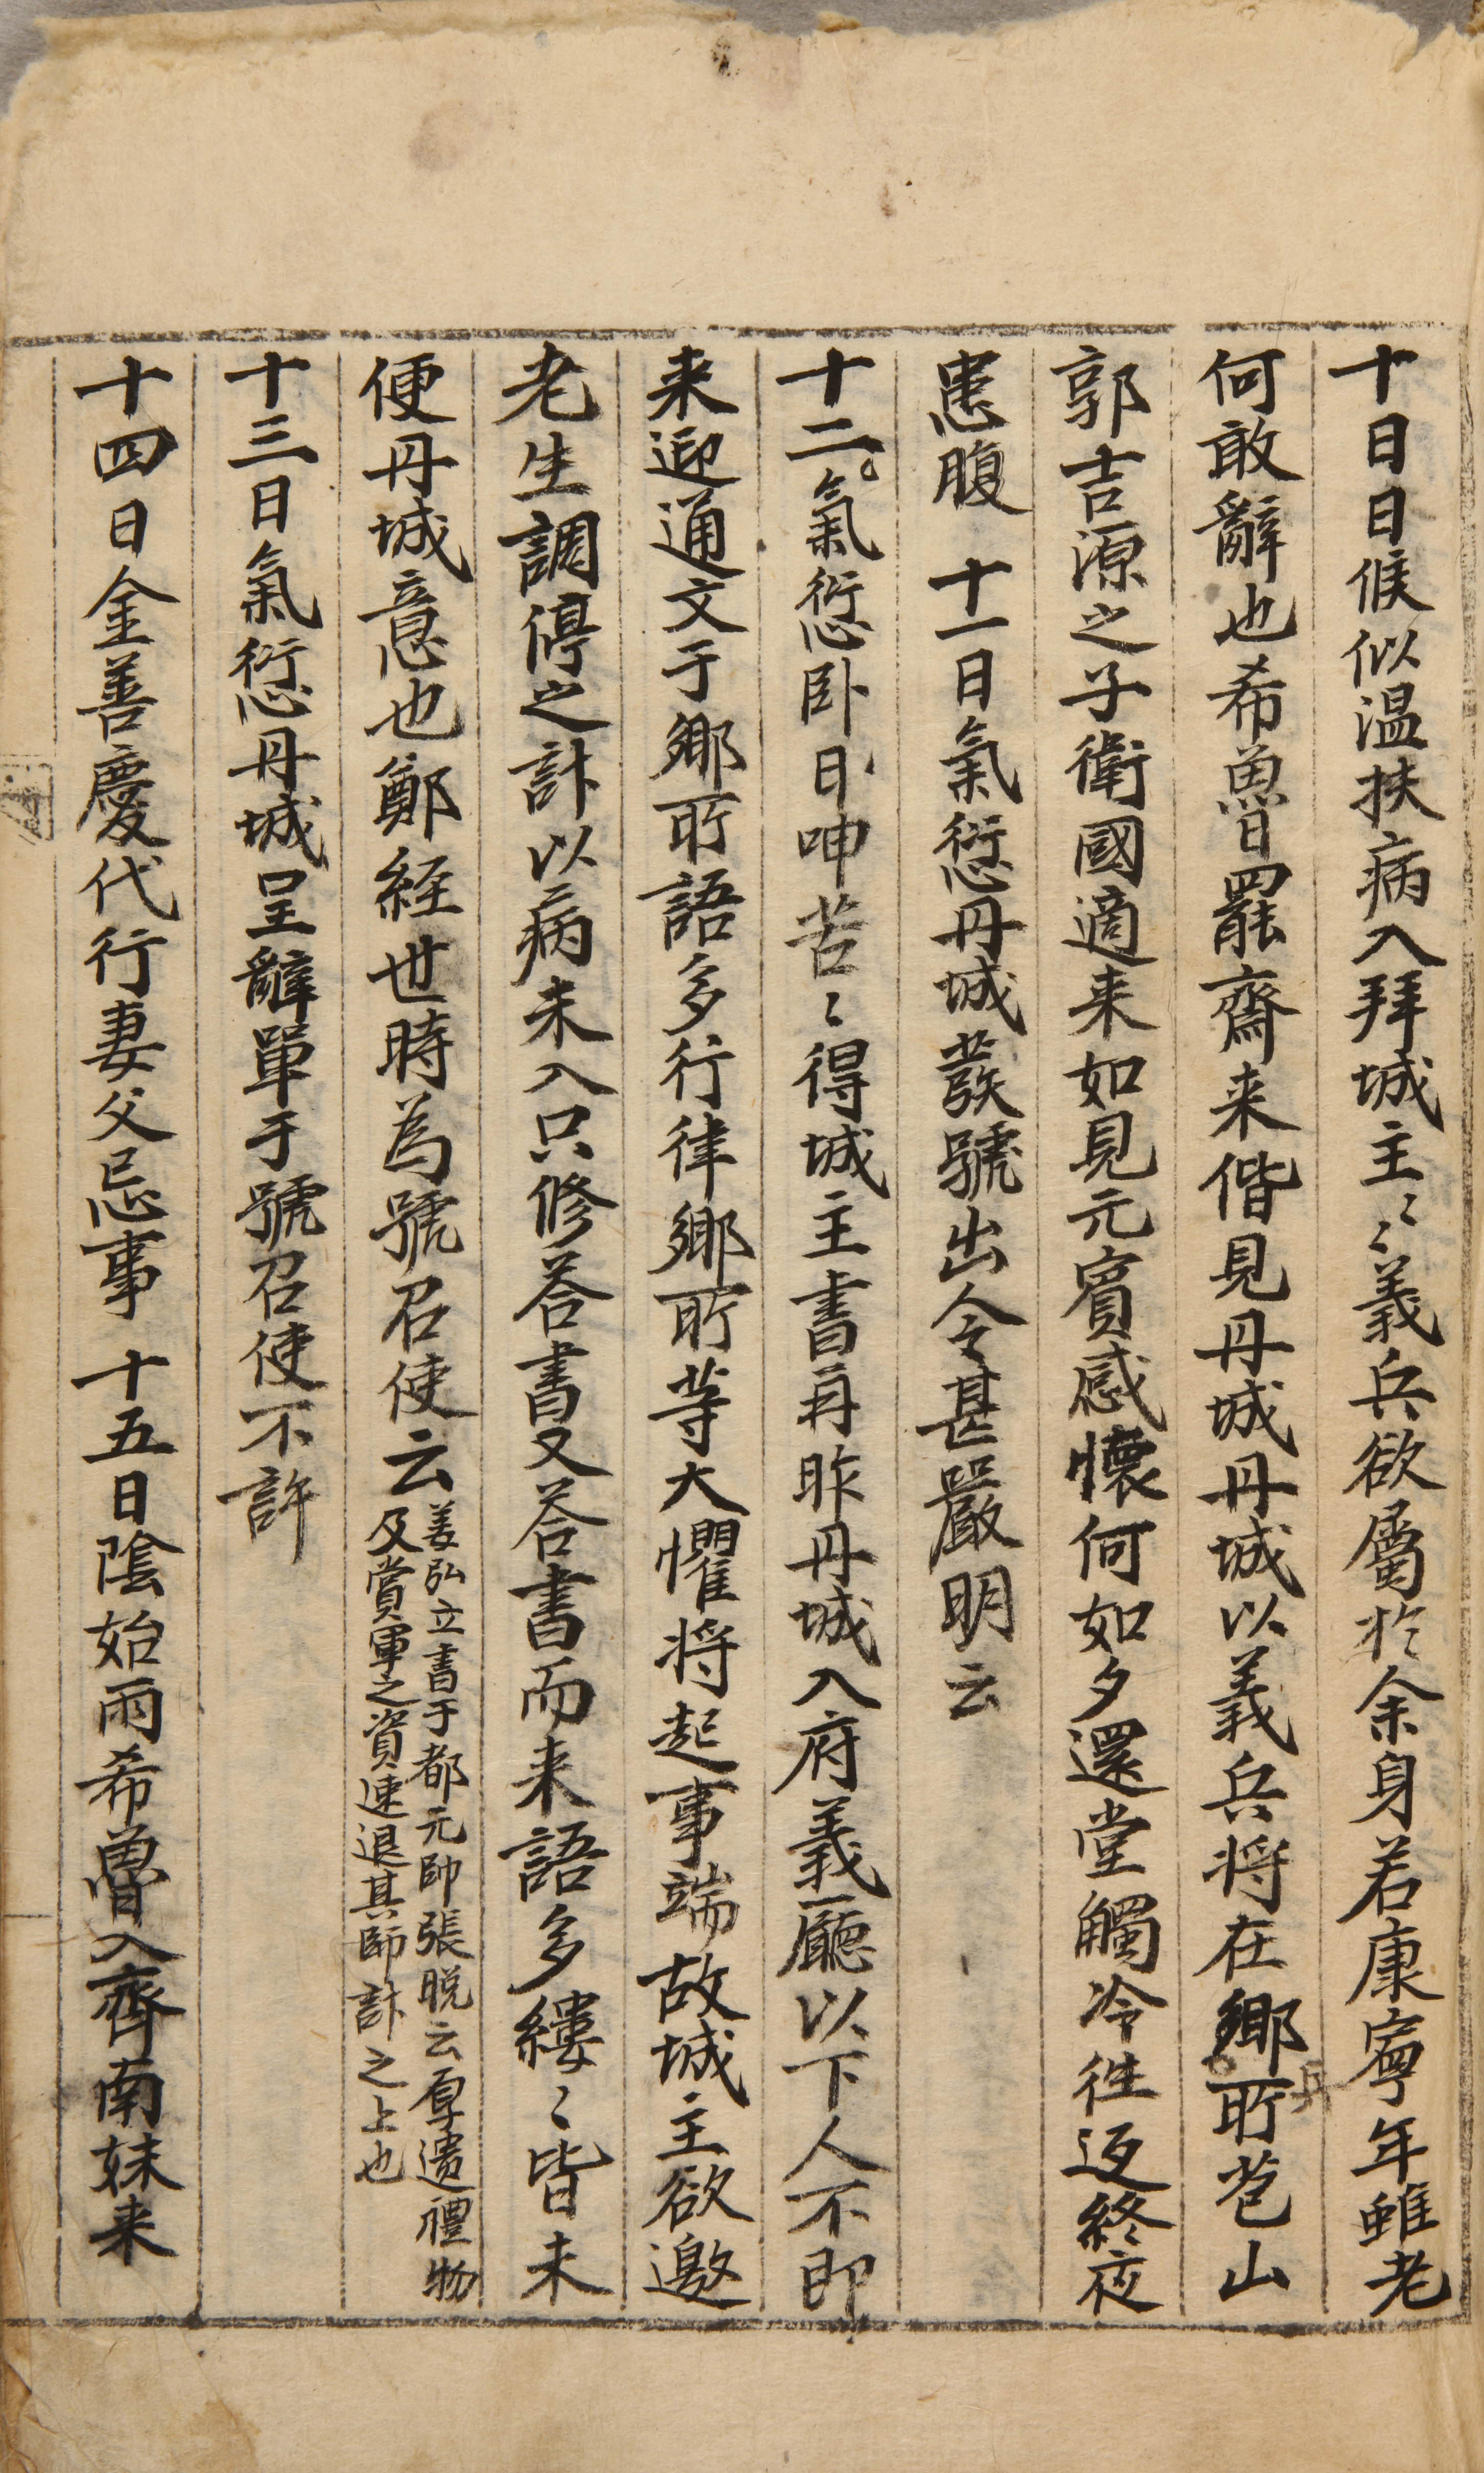 十日日候似温扶病入拜城主〻義兵欲屬於余身若康寧年雖老
何敢辭也希魯日罷齋来偕見丹城丹城以義兵将在鄉所苞山
兵
郭吉源之子衛國適来如見元賓感懷何如夕還堂觸冷徃返終夜
患腹 十一日氣愆丹城發號出令甚嚴明云
十二氣愆卧日呻苦〻得城主書再昨丹城入府義廳以下人不即
来迎通文于鄉所語多行律鄉所等大懼将起事端故城主欲邀
老生調停之計以病未入只修答書又答書而来語多縷〻皆未
便丹城意也鄭経世時為號召使云
姜弘立書于都元帥張脱云厚遺禮物
及賞軍之資速退其師計之上也
十三日氣愆丹城呈辭單于號召使不許
十四日金善慶代行妻父忌事 十五日陰始雨希魯入齊南妹来